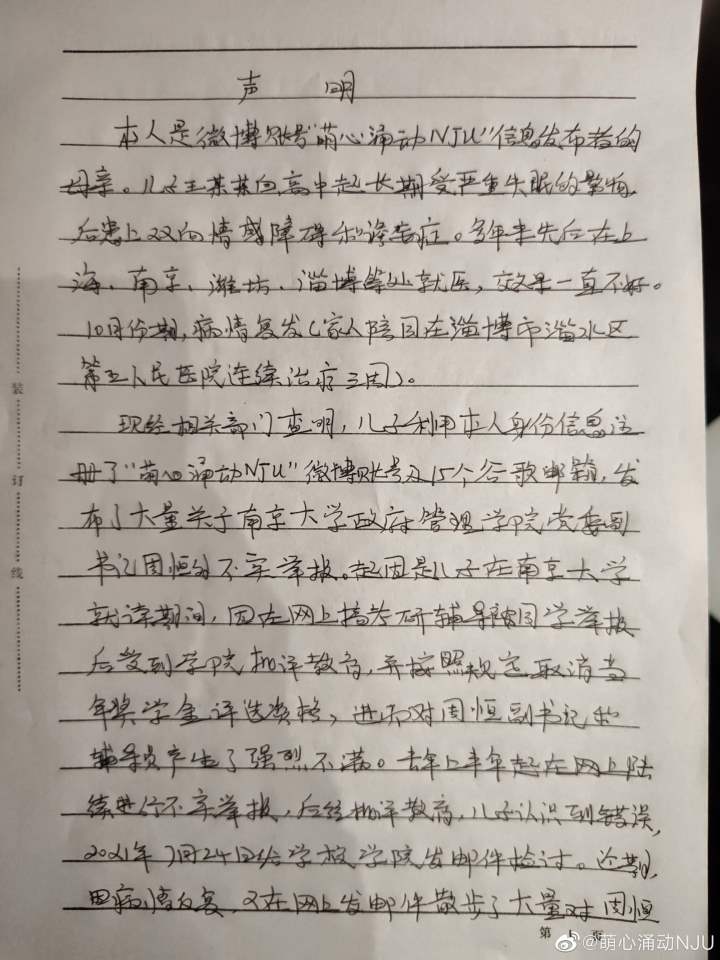 声 明
本人是微博账号"萌心涌动NJU"信息发布者的
母亲。儿子王某某自高中起长期受严重失眠的影响,
后患上双向情感障碍和诊妄症。多年来先后在上
海、南京、潍坊、淄博等处就医,效果一直不好。
10月份期,病情复发(家人陪同在淄博市淄水区
第五人民医院连续治疗三周)。
现经相关部门查明,儿子利用本人身份信息注
册了"萌心涌动NJU"微博账号及15个谷歌邮箱,发
布了大量关于南京大学政府管理学院党委副
书记周恒的不实举报。起因是儿子在南京大学
就读期间,因在网上搞考研辅导被同学举报
后受到学院批评教育,并按照规定取消当
年奖学金评选资格,进而对周恒副书记和
辅导员产生了强烈不满。去年上半年起在网上陆
续进行不实举报,后经批评教育,儿子认识到错误,
2021年7月24日给学校学院发邮件检讨。近期,
因病情反复,又在网上发邮件散步了大量对周恒
装
订
线
第 1 页
@萌心涌动NJU